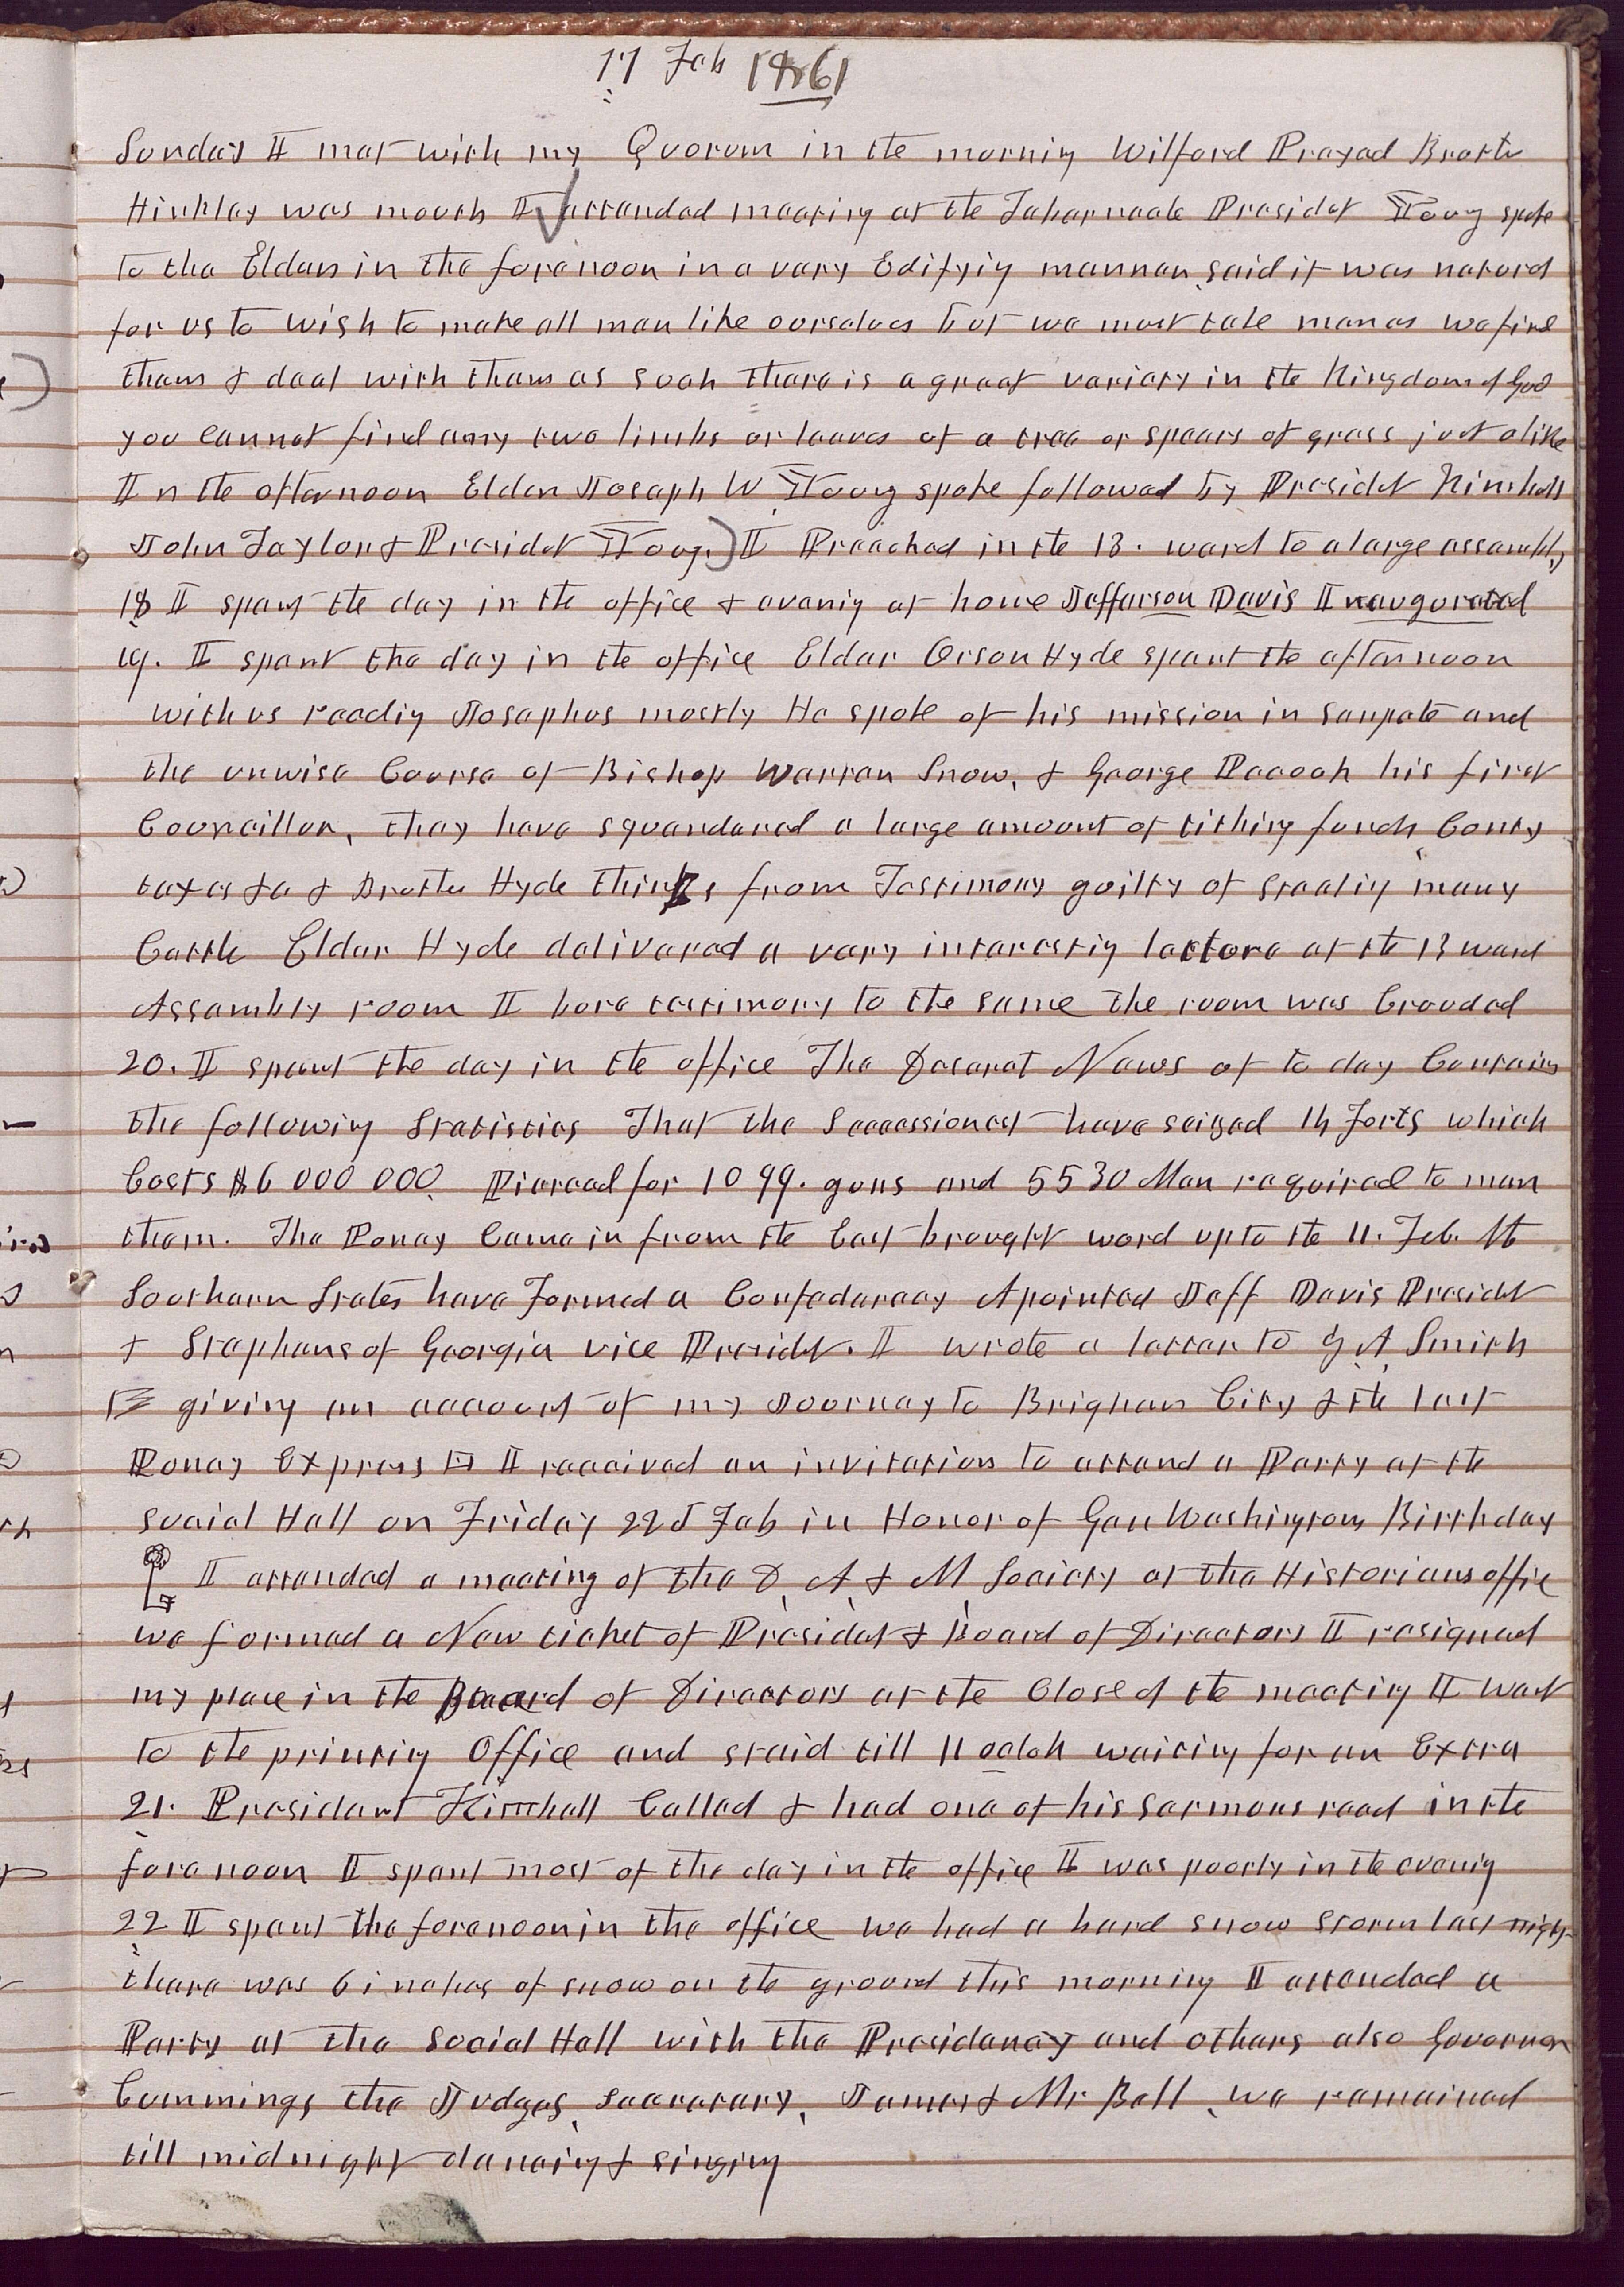 17 Feb 1861
Sunday I met with my Quorum in the morning Wilford Prayed Brother
Hinkley was mouth I attended meeting at the Tabernacle Presidet Young spoke
to the Elders in the forenoon in a very Edifying manner, said it was naturel
for us to wish to make all men like ourselves but we must take men as we find
them & deal with them as such there is a great variety in the Kingdom of God
you Cannot find any two limbs or leaves of a tree or spears of grass just alike
In the afternoon Elder Joseph W Young spoke followed by Presidet Kimball
John Taylor & Presidet Young.) I Preached in the 13. ward to a large assembly
18 I spent the day in the office & evenig at home Jefferson Davis Inaugurated
19. I spent the day in the office Elder Orson Hyde spent the afternoon
with us reading Josephus mostly He spoke of his mission in sanpete and
the unwise Course of Bishop Warren Snow, & George Peacock his first
Councillor, they have squandered a large amount of tithing funds, County
taxes &c & Brother Hyde thinks from Testimony guilty of stealing many
Cattle Elder Hyde delivered a very interesting lecture at the 13 ward
Assembly room I bore testimony to the same The room was Crouded
20. I spent the day in the office The Deseret News of to day Contains
the following Statistics That the Secessionest have seized 14 Forts which
Costs $6 000 000. Pierced for 1099. guns and 5530 Men required to man
them. The Poney Came in from the East brought word up to the 11. Feb. the
Southern States have Formed a Confederacy Apointed Jeff Davis Presidet
& Stephens of Georgia vice Presidet. I wrote a letter to G. A. Smith
giving an account of my Journey to Brigham City & the last
Poney Express I received an invitation to attend a Party at the
social Hall on Friday 22d Feb in Honor of Gen Washingtons Birthday
I attended a meeting of the D, A, & M, Society at the Historians office
we formed a New ticket of Presidet & Board of Directors I resigned
my place in the Board of Directors at the Close of the meeting I went
to the printing Office and staid till 11 oclok waiting for an Extra
21. President Kimball Called & had one of his sermons read in the
forenoon I spent most of the day in the office I was poorly in the evenig
22 I spent the forenoon in the office we had a hard snow storm last night
there was 6 inches of snow on the ground this morning I attended a
Party at the Social Hall with the Presidency and others also Governor
Cummings the Judges, Secretary, James & Mr Bell, we remained
till midnight dancing & singing